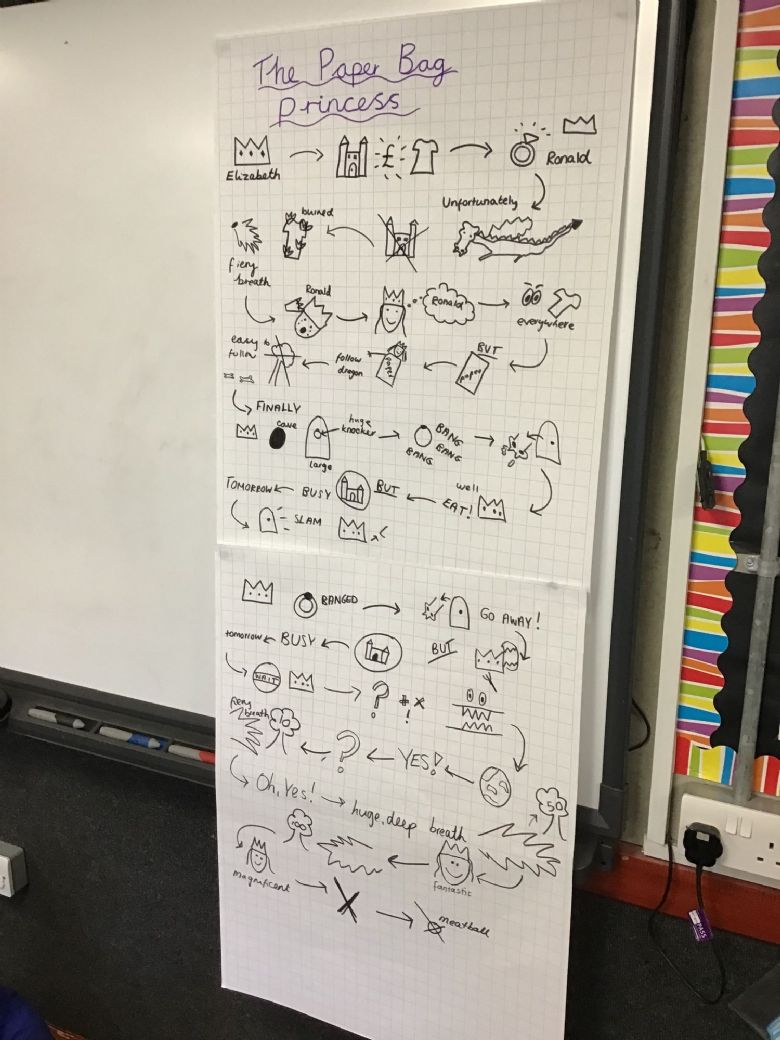 The Paper Bag
Princess
Elizabeth £ Ronald
Unfortunately
burned
fiery
breath
Ronald
Ronald
everywhere
BUT
paper
paper
follow
dragon
easy to
follow
FINALLY
cave
large
huge
knocker
BANG
BANG
BANG
well
EAT!
BUT
BUSY
TOMORROW
SLAM
BANGED
GO AWAY!
BUT
BUSY
tomorrow
WAIT
? # * !
YES!
?
10
fiery
breath
Oh, Yes! huge, deep breath
50
100
fantastic
magnificent
meatball
PASS